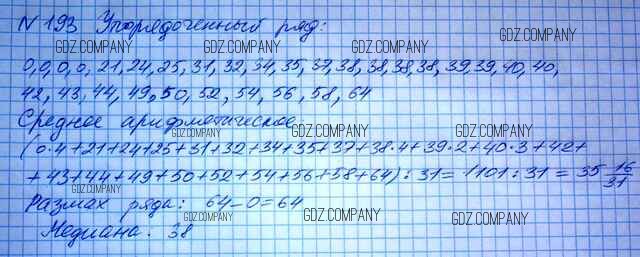 N 193 Упорядоченный ряд:
GDZ.COMPANY GDZ.COMPANY GDZ.COMPANY
0, 0, 0, 0, 21, 24, 25, 31, 32, 34, 35, 37, 38, 38, 38, 38, 39, 39, 40, 40,
GDZ.COMPANY GDZ.COMPANY GDZ.COMPANY
42, 43, 44, 49, 50, 52, 54, 56, 58, 64
Среднее арифметическое
GDZ.COMPANY GDZ.COMPANY GDZ.COMPANY
(0·4+21+24+25+31+32+34+35+37+38·4+39·2+40·3+42+
+43+44+49+50+52+54+56+58+64):31=1101:31=35 16/31
GDZ.COMPANY GDZ.COMPANY
Размах ряда: 64-0=64
GDZ.COMPANY GDZ.COMPANY
Медиана: 38
GDZ.COMPANY